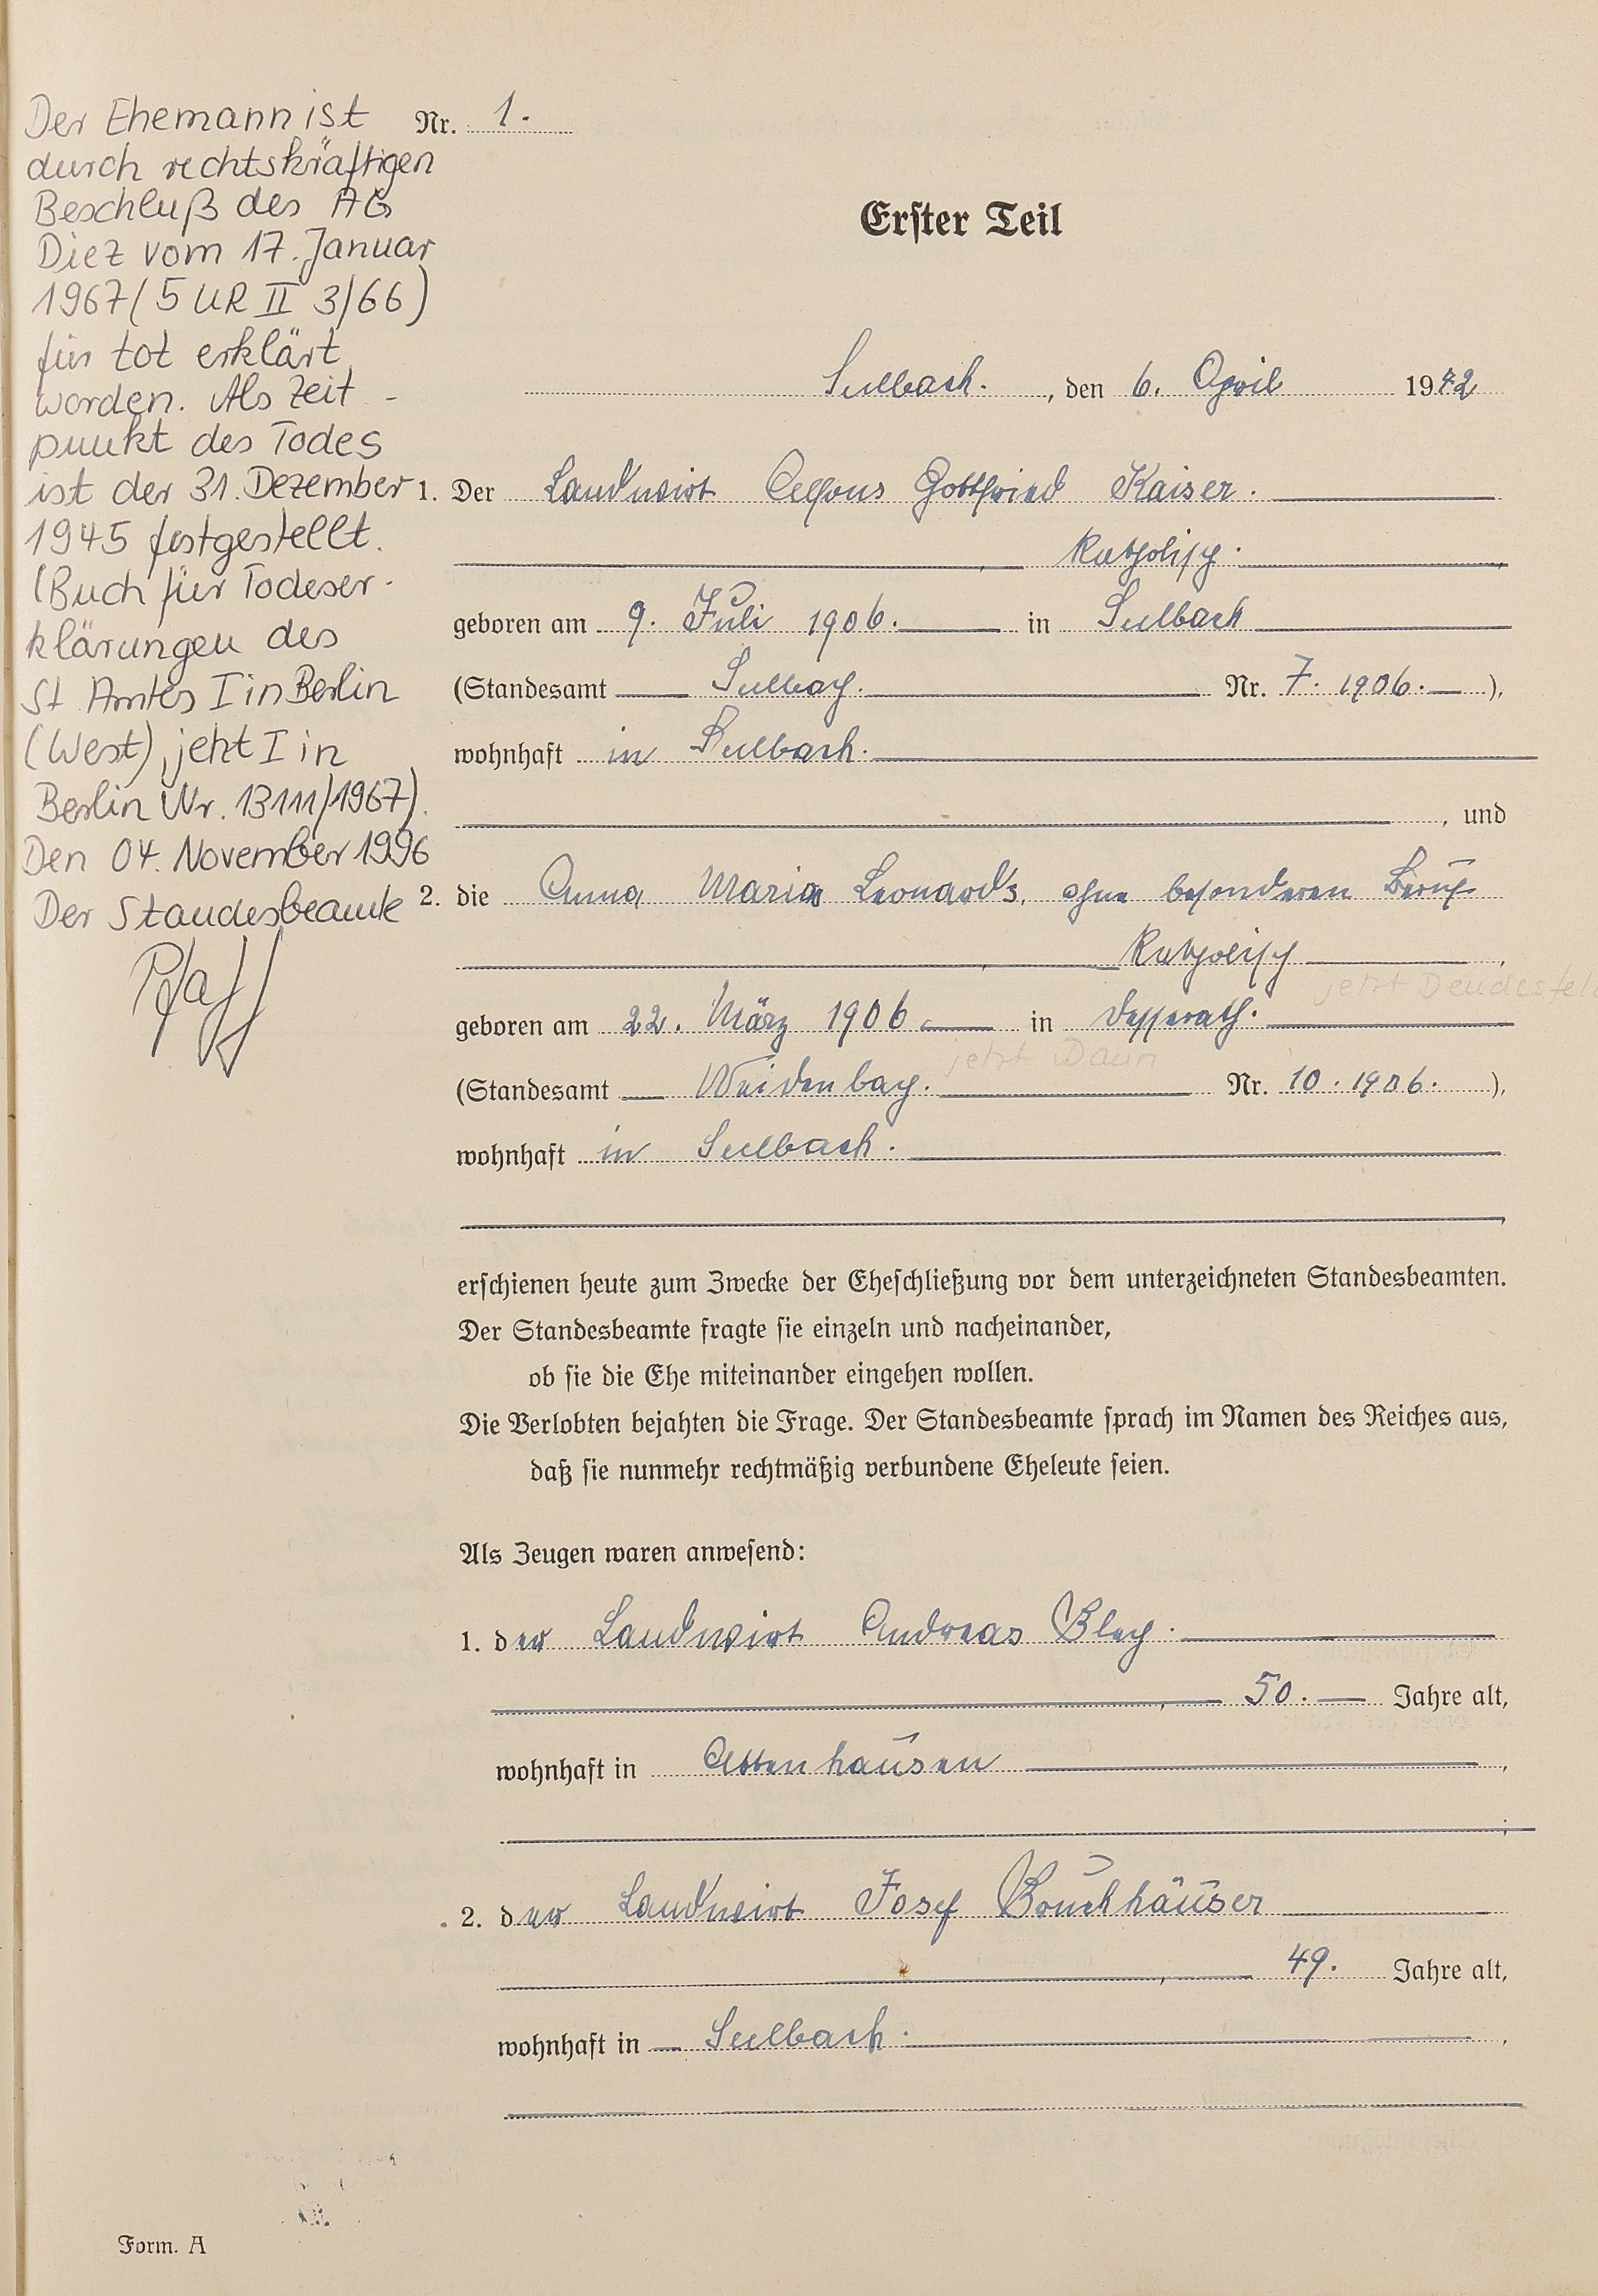 Der Ehemann ist
durch rechtskräftigen
Beschluß des AG
Diez vom 17. Januar
1967 (5 UR II 3/66)
für tot erklärt
worden. Als Zeit -
punkt des Todes
ist der 31. Dezember
1945 festgestellt.
(Buch für Todeser-
klärungen des
St Amtes I in Berlin
(West), jetzt I in
Berlin Nr. 13111/1967).
Den 04. November 1996
Der Standesbeamte
Pfaff
Nr. 1.
Erster Teil
Seelbach. , den 6. April 1942
1. Der Landwirt Alfons Gottfried Kaiser.
Katholisch.
geboren am 9. Juli 1906. in Seelbach
(Standesamt Seelbach. Nr. 7. 1906. ),
wohnhaft in Seelbach.
, und
2. die Anna Maria Leonards, ohne besonderen Beruf
Katholisch ,
jetzt Deudesfeld
geboren am 22. März 1906 in Desserath.
jetzt Daun
(Standesamt Weidenbach. Nr. 10. 1906. ),
wohnhaft in Seelbach.
erschienen heute zum Zwecke der Eheschließung vor dem unterzeichneten Standesbeamten.
Der Standesbeamte fragte sie einzeln und nacheinander,
ob sie die Ehe miteinander eingehen wollen.
Die Verlobten bejahten die Frage. Der Standesbeamte sprach im Namen des Reiches aus,
daß sie nunmehr rechtmäßig verbundene Eheleute seien.
Als Zeugen waren anwesend:
1. der Landwirt Andreas Bley.
, 50. Jahre alt,
wohnhaft in Attenhausen ,
;
2. der Landwirt Josef Bruchhäuser
, 49. Jahre alt,
wohnhaft in Seelbach. ,
Form. A